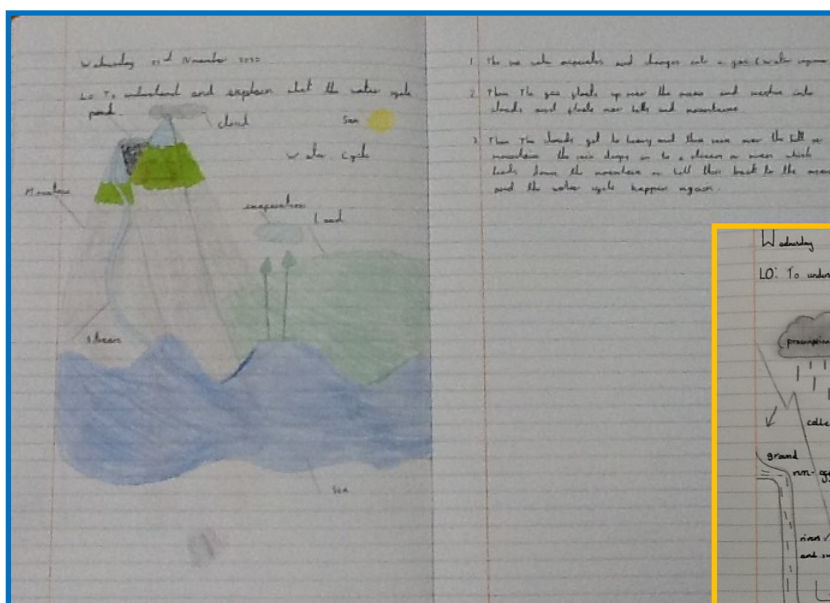 Wednesday November 2020
LO: To understand and explain what the water cycle
pond
cloud
Sun
Water Cycle
Mountain
evaporation
Land
Stream
Sea
1. The sea water evaporates and changes into a gas (water vapour
2. Then The gas floats up over the and into
clouds and floats over hills and mountains
3. Then The clouds get to heavy and then rain over the hill or
mountain the rain drops in to a stream or river which
leads down the mountain or hill then back to the
and the water cycle happens again.
Wednesday
LO: To under
precipitation
colle
ground
run-off
river
and